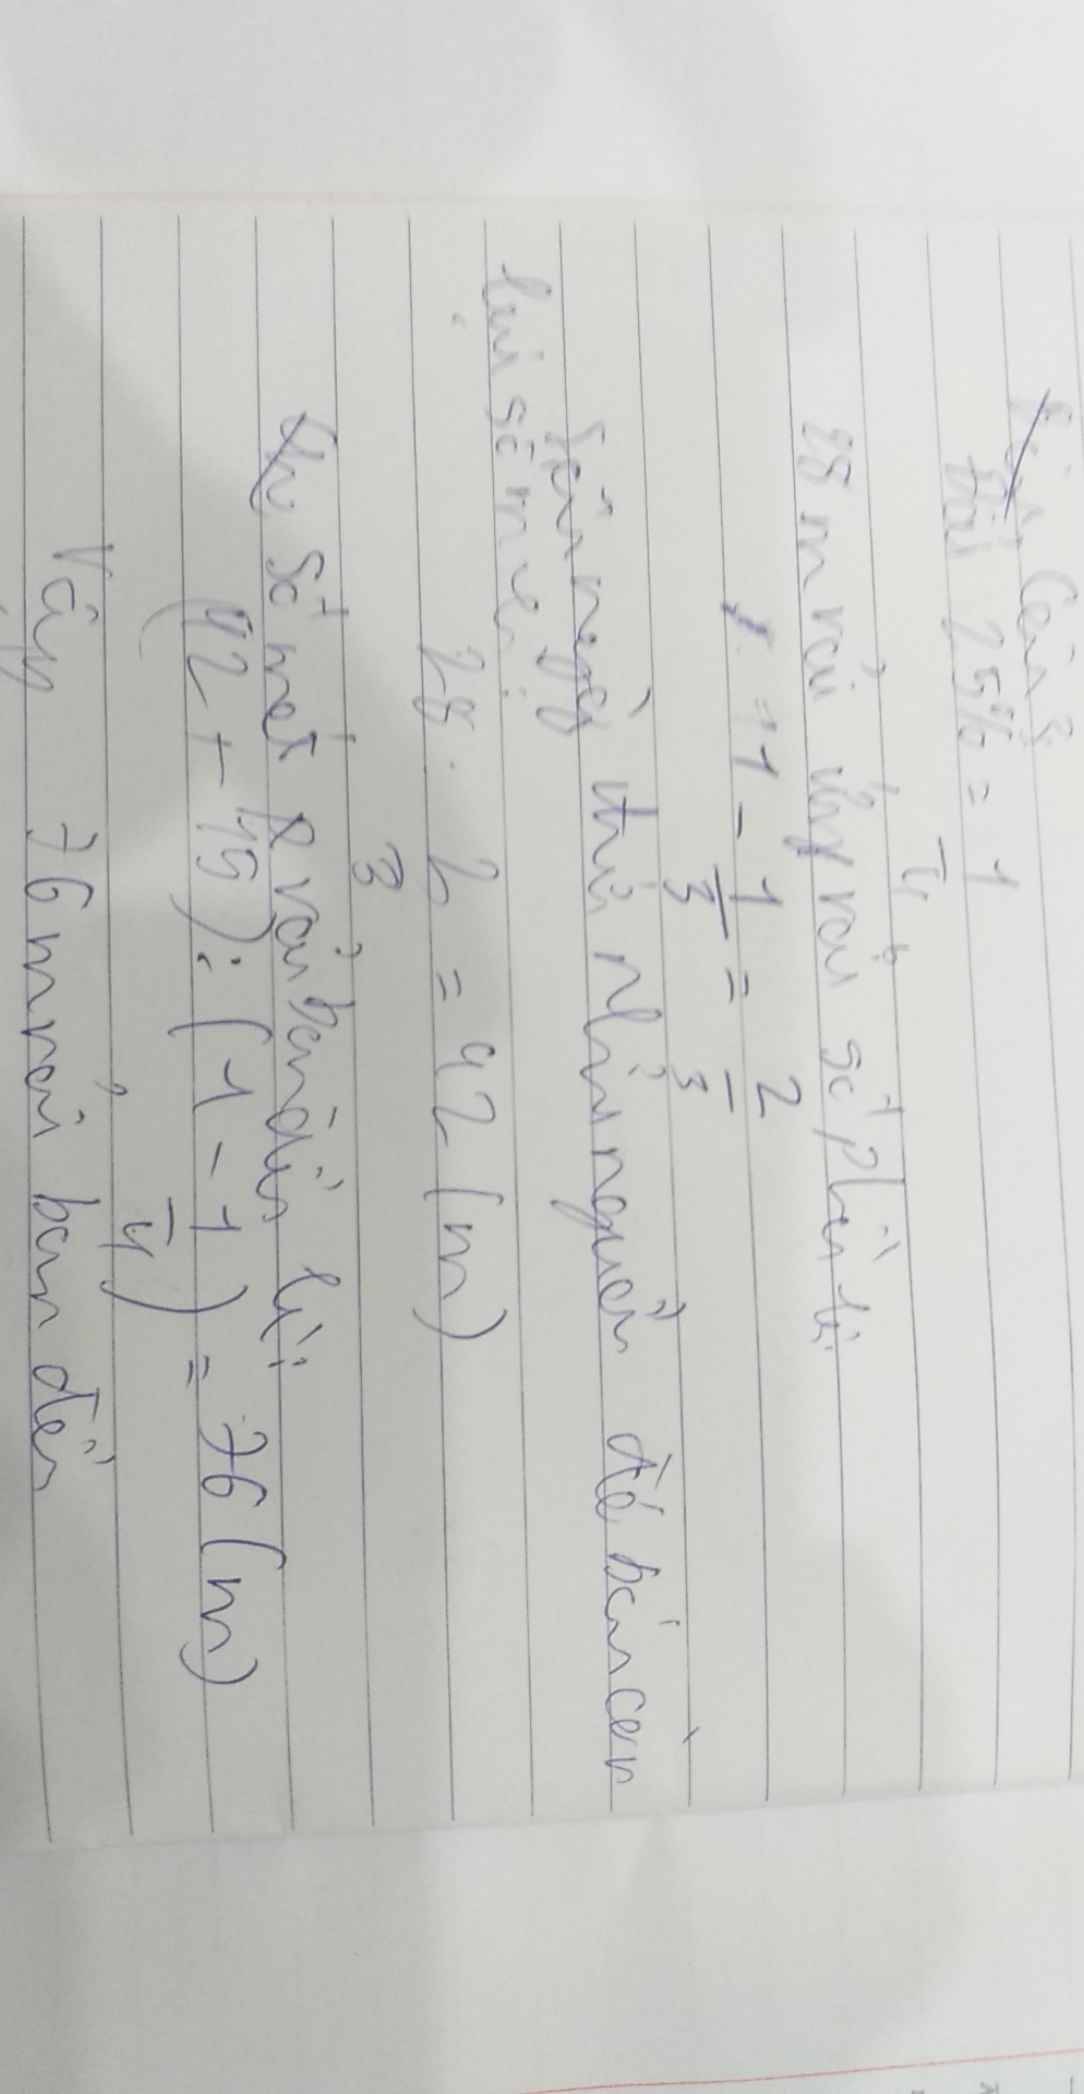 Đổi 25% = 1/4
28 m vải ứng với số phần là:
1 - 1/3 = 2/3
Sau ngày thứ nhất người đó bán còn
lại số mét
28 : 2/3 = 42 (m)
số mét vải ban đầu là:
(42 + 15) : (1 - 1/4) = 76 (m)
Vậy 76 m vải ban đầu